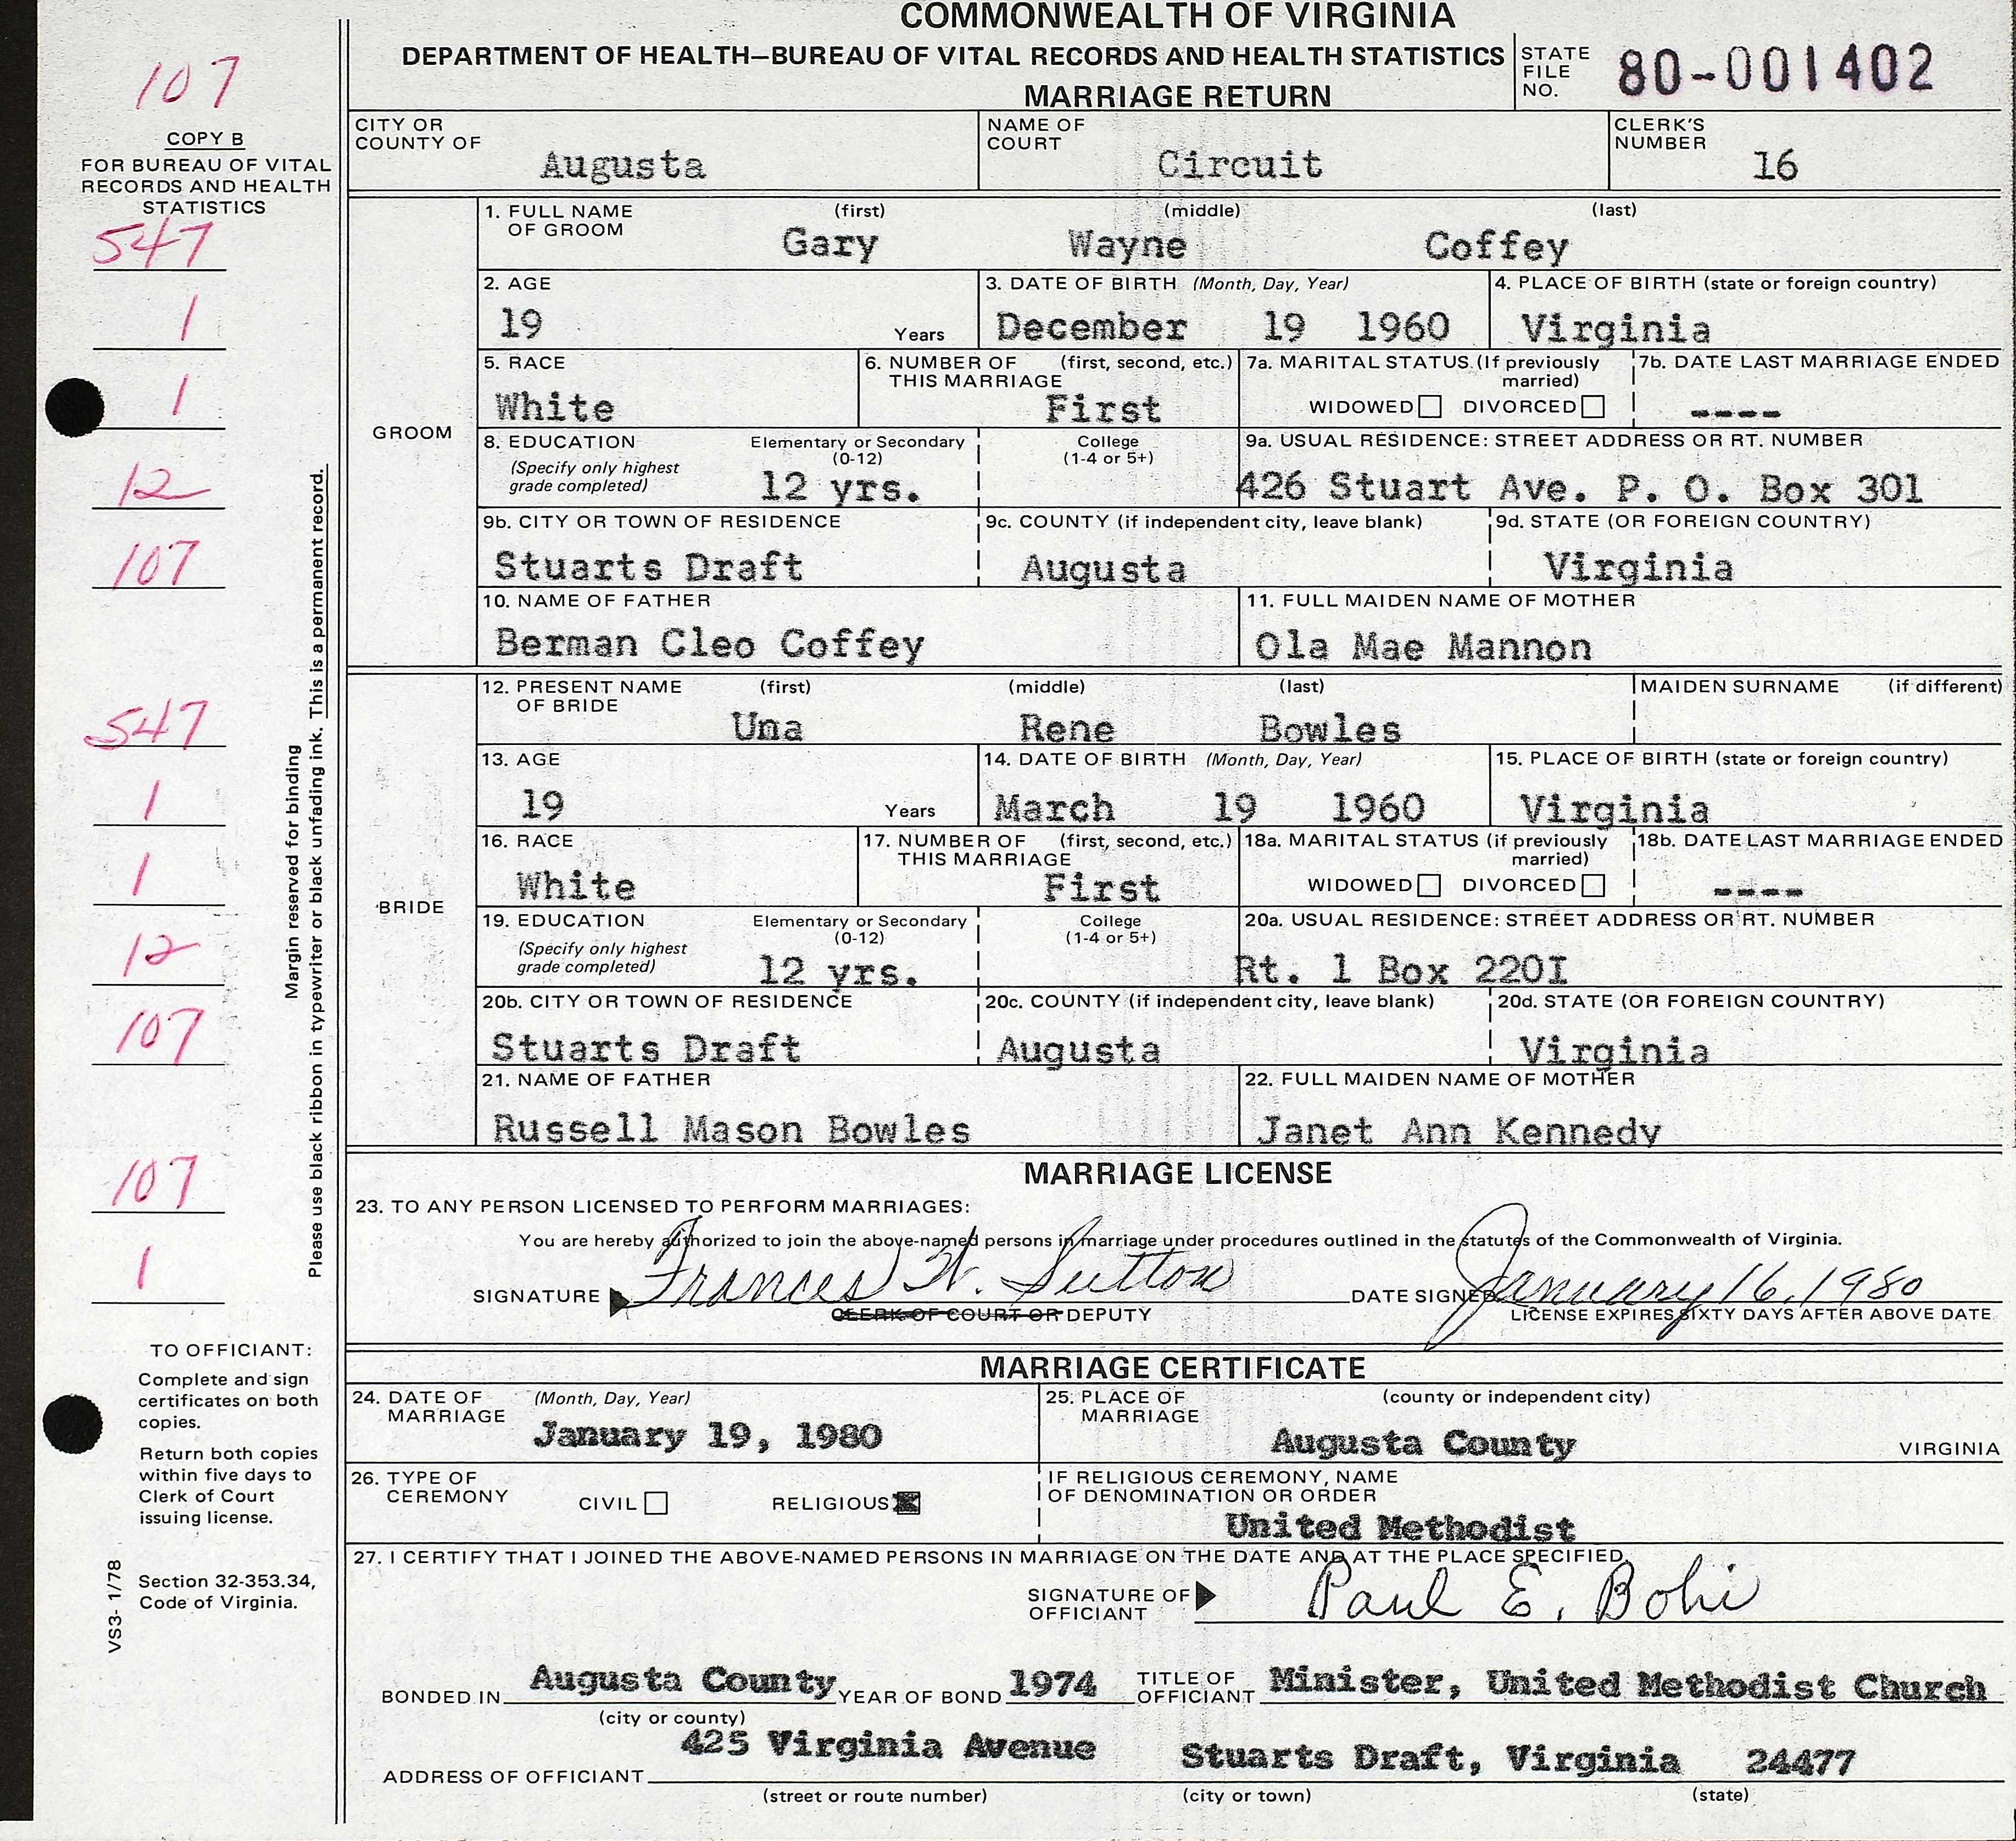 COMMONWEALTH OF VIRGINIA
DEPARTMENT OF HEALTH—BUREAU OF VITAL RECORDS AND HEALTH STATISTICS
MARRIAGE RETURN
STATE FILE NO. 80-001402
107
COPY B
FOR BUREAU OF VITAL
RECORDS AND HEALTH
STATISTICS
547
1
1
12
107
547
1
1
12
107
107
1
Margin reserved for binding
Please use black ribbon in typewriter or black unfading ink. This is a permanent record.
TO OFFICIANT:
Complete and sign
certificates on both
copies.
Return both copies
within five days to
Clerk of Court
issuing license.
Section 32-353.34,
Code of Virginia.
VS3- 1/78
CITY OR COUNTY OF Augusta
NAME OF COURT Circuit
CLERK'S NUMBER 16
GROOM
1. FULL NAME OF GROOM (first) (middle) (last)
Gary Wayne Coffey
2. AGE 19 Years
3. DATE OF BIRTH (Month, Day, Year) December 19 1960
4. PLACE OF BIRTH (state or foreign country) Virginia
5. RACE White
6. NUMBER OF THIS MARRIAGE (first, second, etc.) First
7a. MARITAL STATUS (If previously married) WIDOWED DIVORCED
7b. DATE LAST MARRIAGE ENDED ----
8. EDUCATION (Specify only highest grade completed) Elementary or Secondary (0-12) 12 yrs.
College (1-4 or 5+)
9a. USUAL RESIDENCE: STREET ADDRESS OR RT. NUMBER
426 Stuart Ave. P. O. Box 301
9b. CITY OR TOWN OF RESIDENCE Stuarts Draft
9c. COUNTY (if independent city, leave blank) Augusta
9d. STATE (OR FOREIGN COUNTRY) Virginia
10. NAME OF FATHER Berman Cleo Coffey
11. FULL MAIDEN NAME OF MOTHER Ola Mae Mannon
BRIDE
12. PRESENT NAME OF BRIDE (first) (middle) (last) MAIDEN SURNAME (if different)
Una Rene Bowles
13. AGE 19 Years
14. DATE OF BIRTH (Month, Day, Year) March 19 1960
15. PLACE OF BIRTH (state or foreign country) Virginia
16. RACE White
17. NUMBER OF THIS MARRIAGE (first, second, etc.) First
18a. MARITAL STATUS (if previously married) WIDOWED DIVORCED
18b. DATE LAST MARRIAGE ENDED ----
19. EDUCATION (Specify only highest grade completed) Elementary or Secondary (0-12) 12 yrs.
College (1-4 or 5+)
20a. USUAL RESIDENCE: STREET ADDRESS OR RT. NUMBER
Rt. 1 Box 220I
20b. CITY OR TOWN OF RESIDENCE Stuarts Draft
20c. COUNTY (if independent city, leave blank) Augusta
20d. STATE (OR FOREIGN COUNTRY) Virginia
21. NAME OF FATHER Russell Mason Bowles
22. FULL MAIDEN NAME OF MOTHER Janet Ann Kennedy
MARRIAGE LICENSE
23. TO ANY PERSON LICENSED TO PERFORM MARRIAGES:
You are hereby authorized to join the above-named persons in marriage under procedures outlined in the statutes of the Commonwealth of Virginia.
SIGNATURE Frances W. Sutton DATE SIGNED January 16, 1980
CLERK OF COURT OR DEPUTY LICENSE EXPIRES SIXTY DAYS AFTER ABOVE DATE
MARRIAGE CERTIFICATE
24. DATE OF MARRIAGE (Month, Day, Year) January 19, 1980
25. PLACE OF MARRIAGE (county or independent city) Augusta County VIRGINIA
26. TYPE OF CEREMONY CIVIL RELIGIOUS
IF RELIGIOUS CEREMONY, NAME OF DENOMINATION OR ORDER United Methodist
27. I CERTIFY THAT I JOINED THE ABOVE-NAMED PERSONS IN MARRIAGE ON THE DATE AND AT THE PLACE SPECIFIED.
SIGNATURE OF OFFICIANT Paul E. Bohi
BONDED IN Augusta County YEAR OF BOND 1974 TITLE OF OFFICIANT Minister, United Methodist Church
(city or county)
ADDRESS OF OFFICIANT 425 Virginia Avenue Stuarts Draft, Virginia 24477
(street or route number) (city or town) (state)